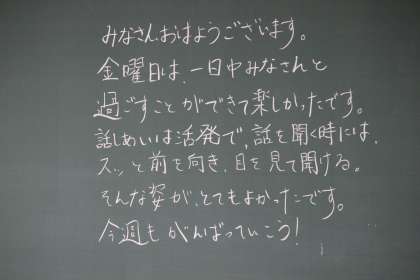 みなさんおはようございます。
金曜日は、一日中みなさんと
過ごすことができて楽しかったです。
話しあいは活発で、話を聞く時には、
スッと前を向き、目を見て聞ける。
そんな姿が、とてもよかったです。
今週もがんばっていこう!